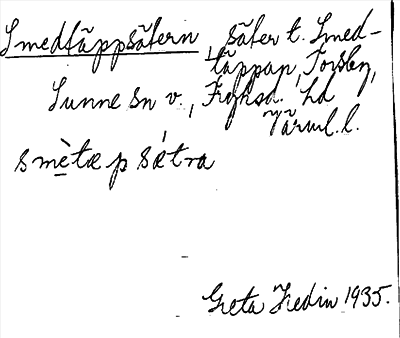 Smedtäppsätern, säter t. Smed-
täppan, Torsby,
Sunne sn v., Fryksd. hd
Värml. l.
smètæpsǽtra
Greta Hedin 1935.